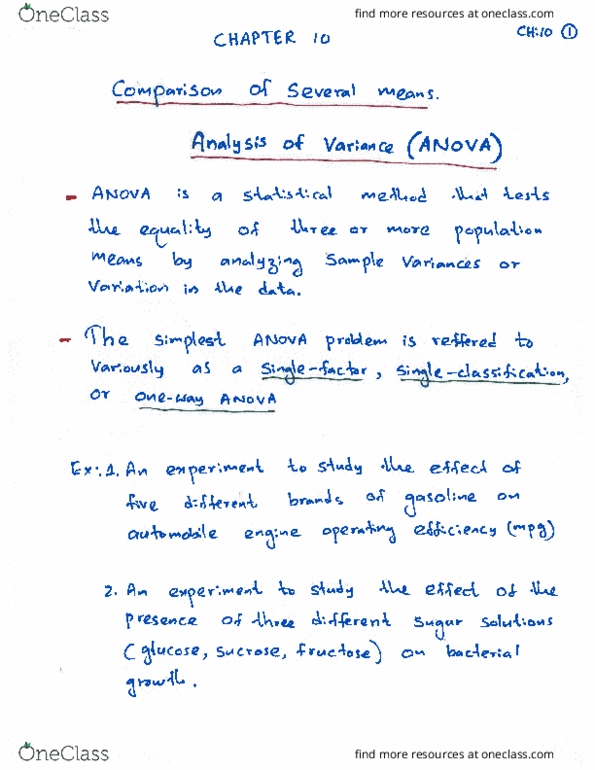 OneClass
find more resources at oneclass.com
CHAPTER 10
CH:10 1
Comparison of Several means.
Analysis of Variance (ANOVA)
- ANOVA is a statistical method that tests
the equality of three or more population
means by analyzing Sample Variances or
Variation in the data.
- The simplest ANOVA problem is reffered to
Variously as a Single-factor, Single-classification,
or one-way ANOVA
Ex: 1. An experiment to study the effect of
five different brands of gasoline on
automobile engine operating efficiency (mpg)
2. An experiment to study the effect of the
presence of three different sugar solutions
(glucose, sucrose, fructose) on bacterial
growth.
OneClass
find more resources at oneclass.com